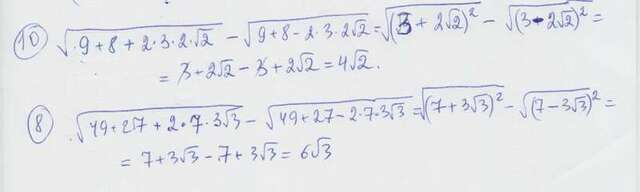 (10) √(9+8+2·3·2√2) − √(9+8−2·3·2√2) = √(3+2√2)² − √(3−2√2)² =
= 3+2√2 − 3+2√2 = 4√2.
(8) √(49+27+2·7·3√3) − √(49+27−2·7·3√3) = √(7+3√3)² − √(7−3√3)² =
= 7+3√3 − 7+3√3 = 6√3